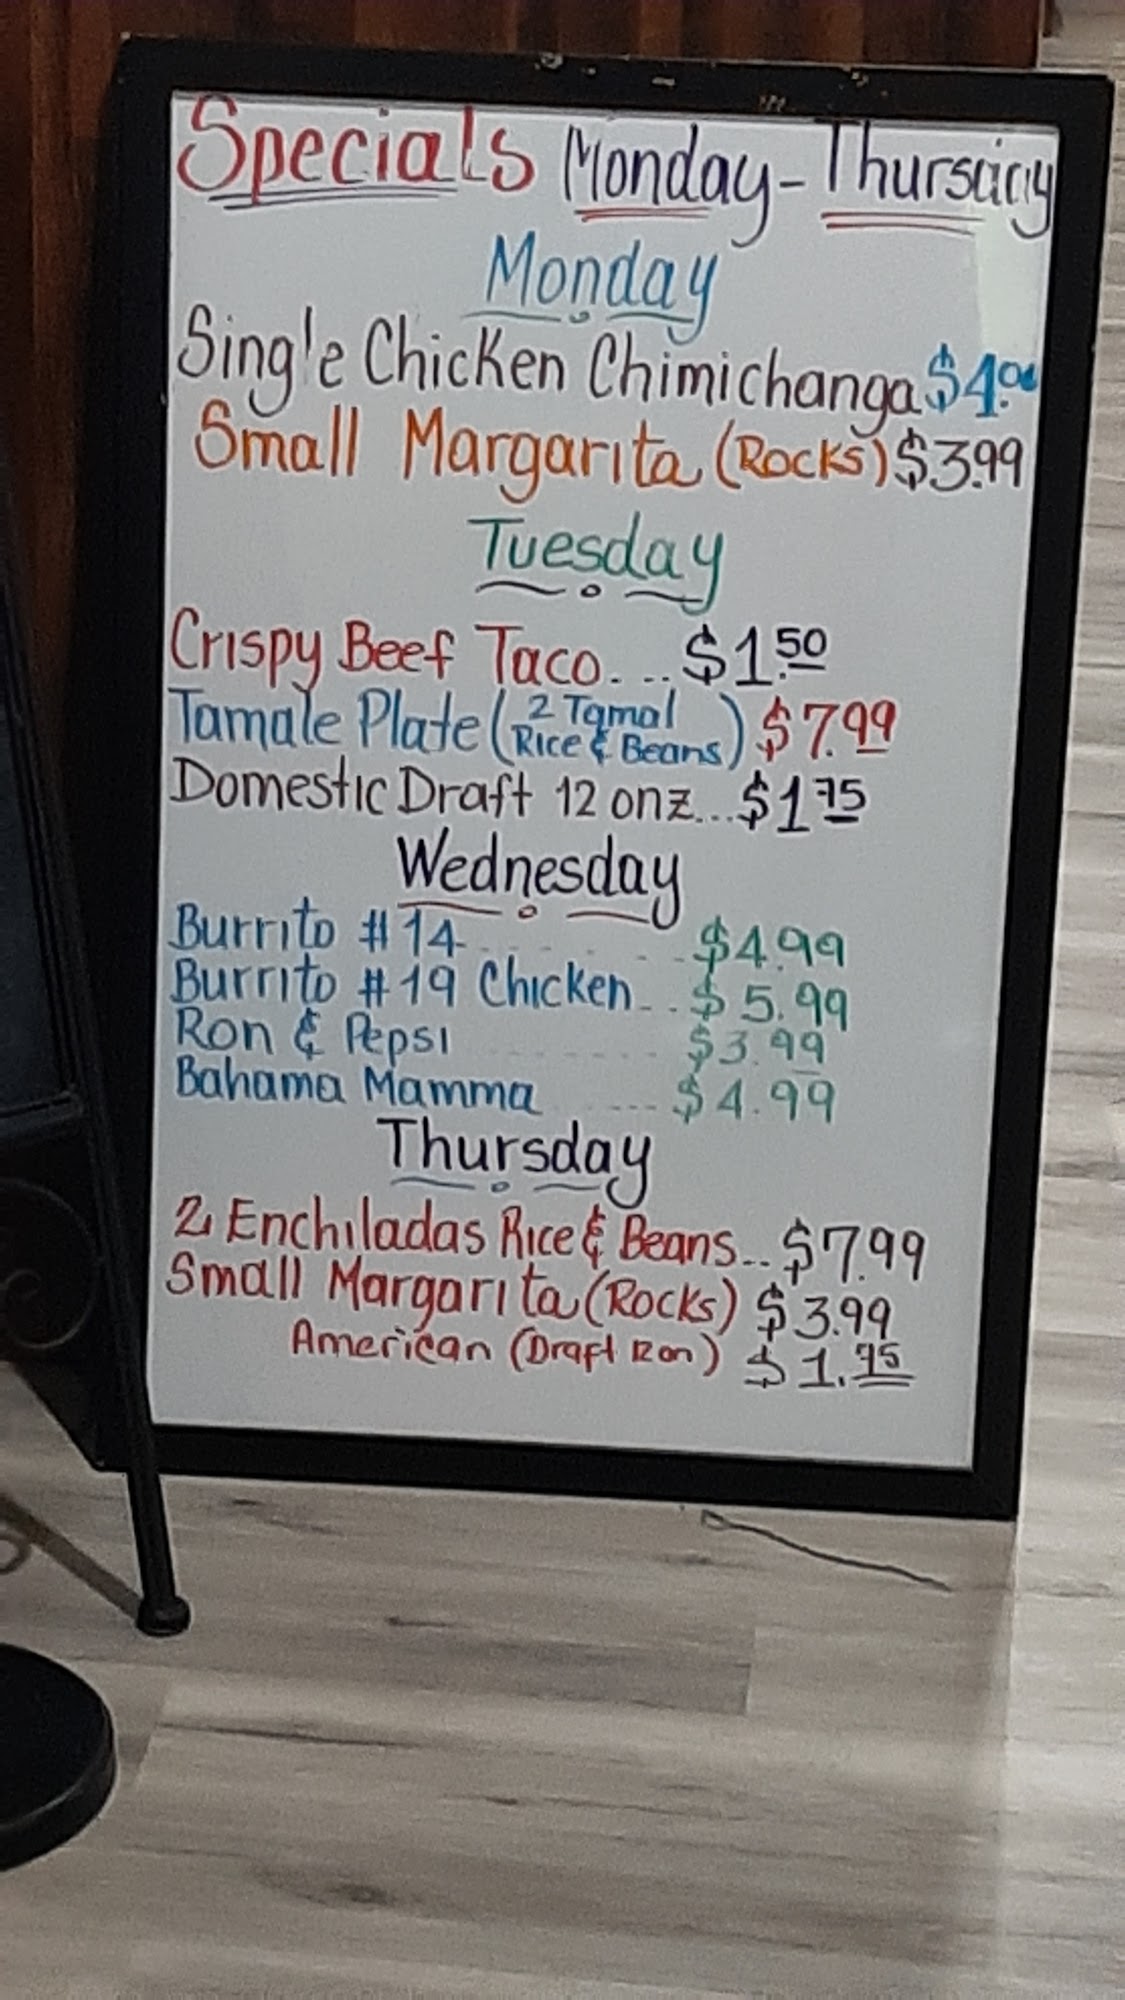 Specials Monday-Thursday
Monday
Single Chicken Chimichanga $4.00
Small Margarita (Rocks) $3.99
Tuesday
Crispy Beef Taco.... $1.50
Tamale Plate (2 Tamal Rice & Beans) $7.99
Domestic Draft 12 onz...$1.75
Wednesday
Burrito #14........ $4.99
Burrito #19 Chicken... $5.99
Ron & Pepsi ........ $3.99
Bahama Mamma ..... $4.99
Thursday
2 Enchiladas Rice & Beans... $7.99
Small Margarita (Rocks) $3.99
American (Draft 12 on) $1.75